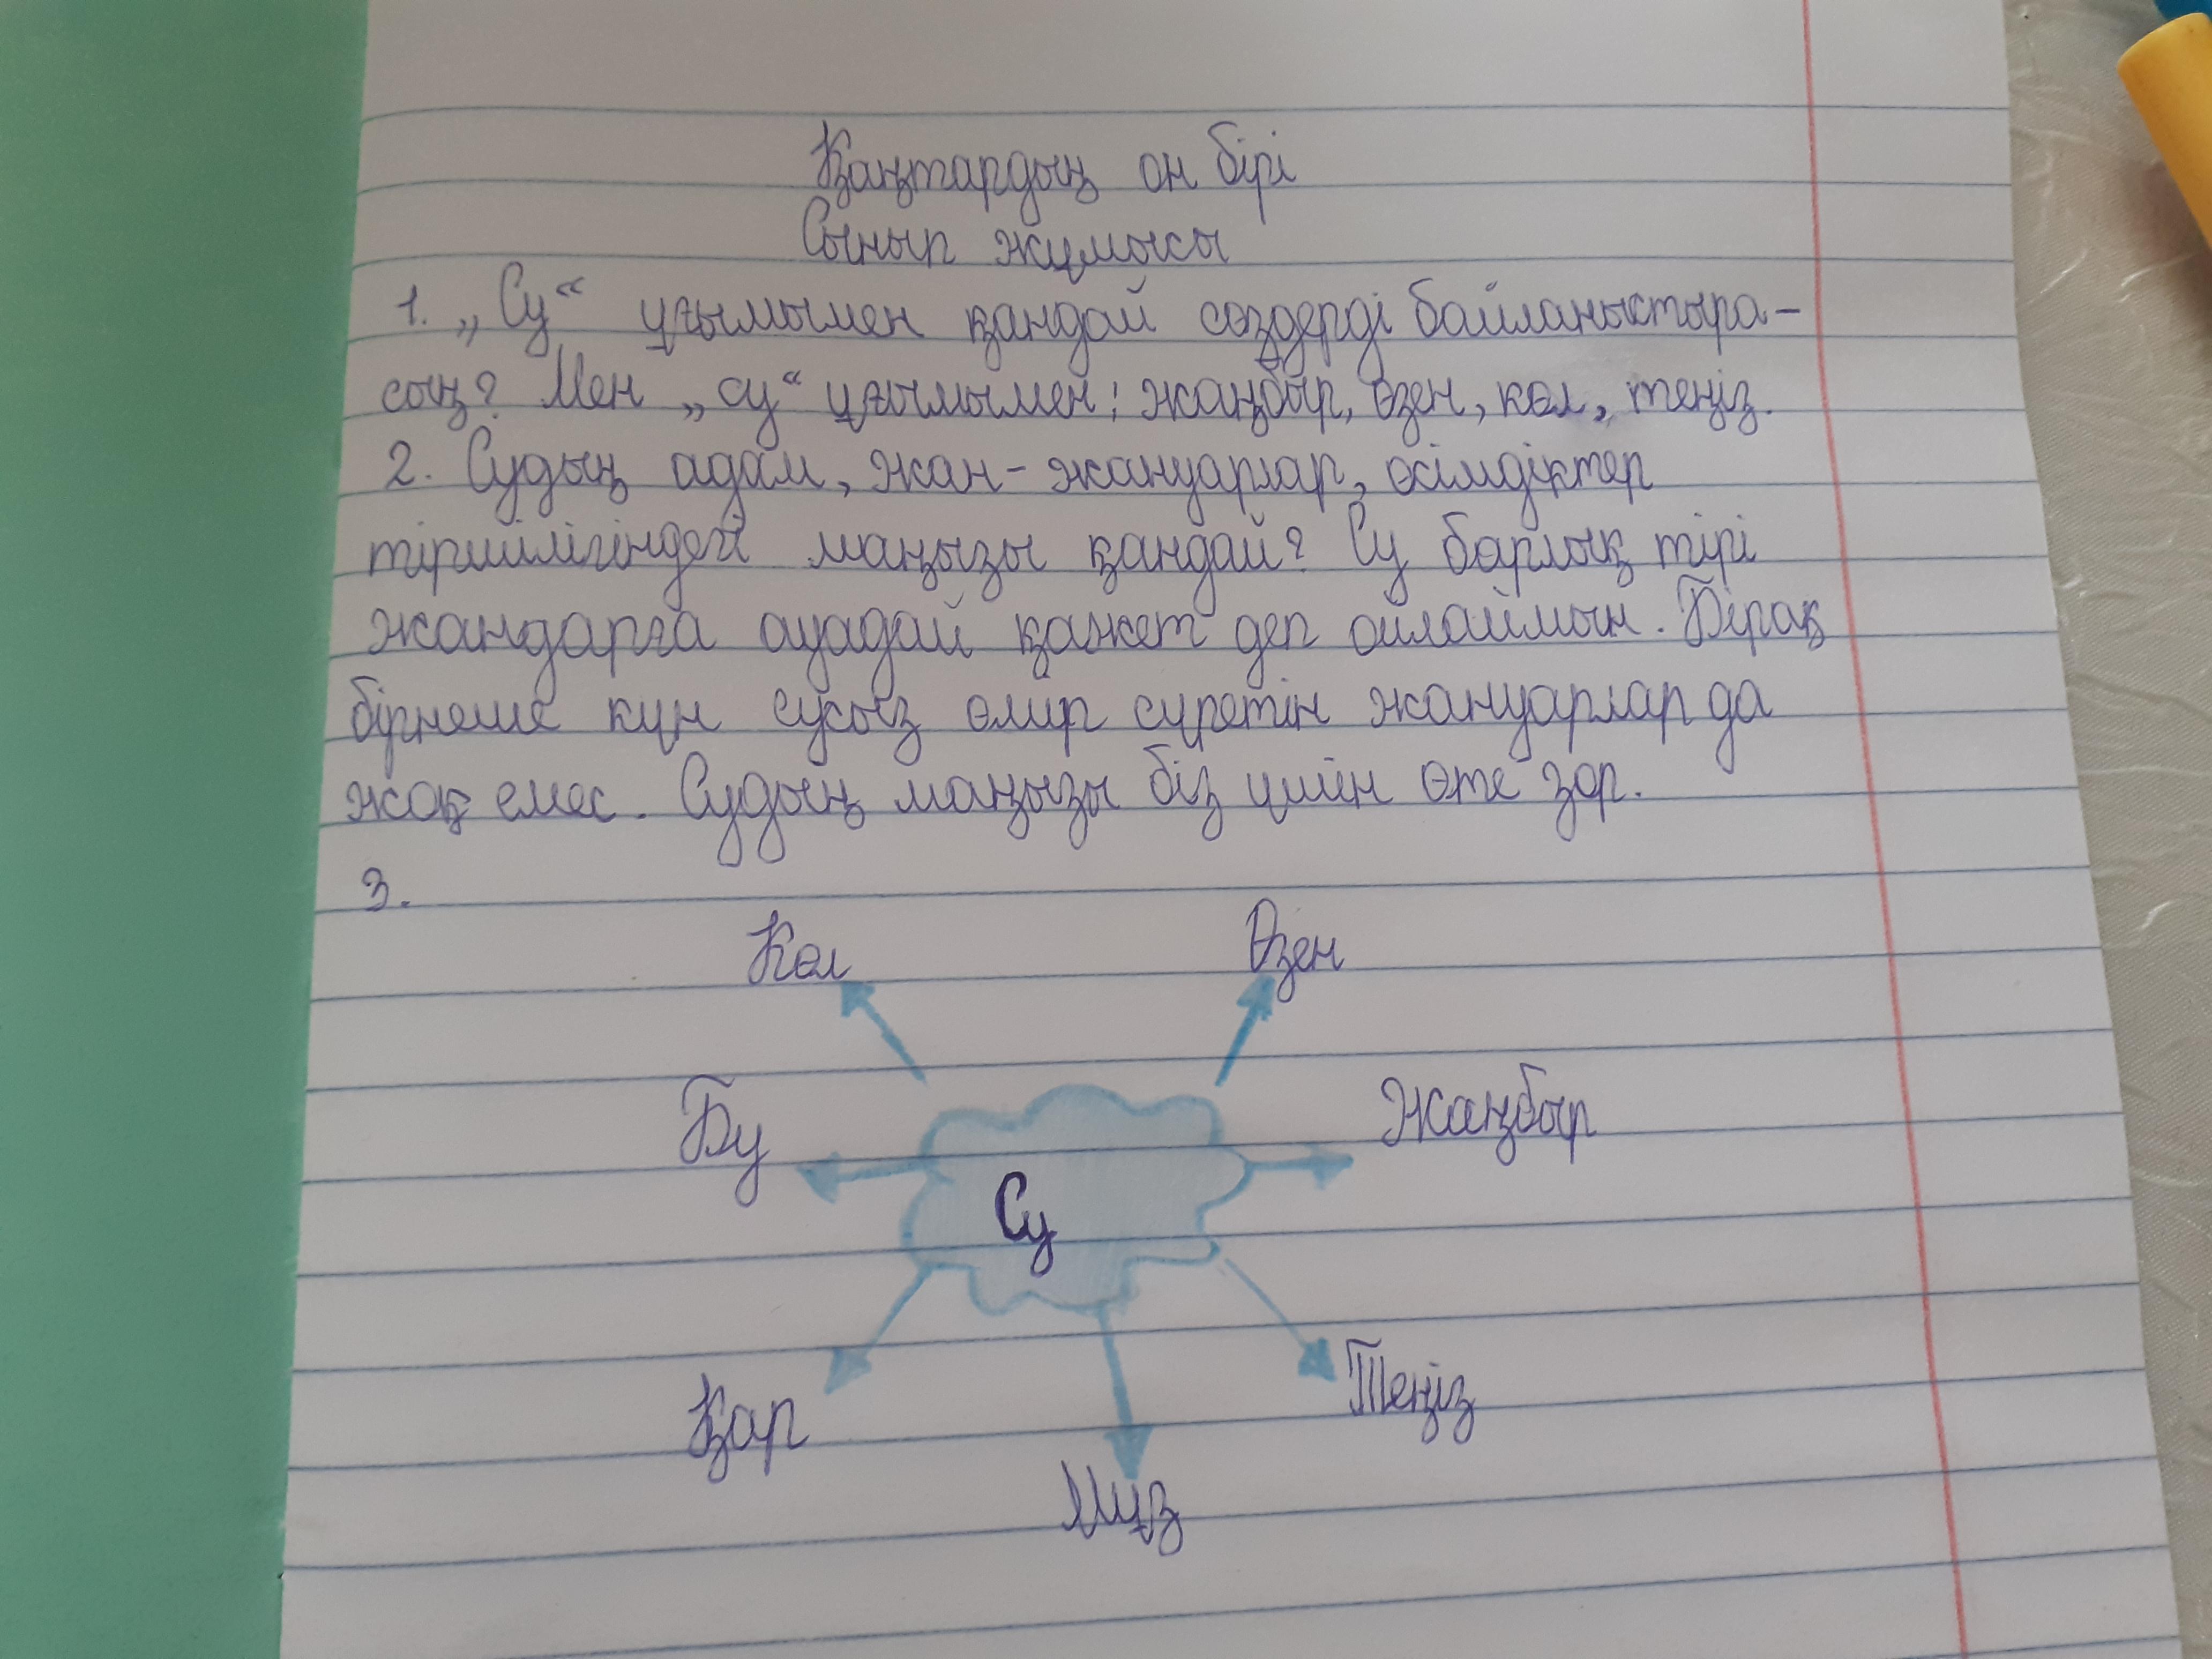 Қаңтардың он бірі
Сынып жұмысы
1. „Су“ ұғымымен қандай сөздерді байланыстыра-
сың? Мен „су“ ұғымымен: жаңбыр, өзен, көл, теңіз.
2. Судың адам, жан-жануарлар, өсімдіктер
тіршілігіндегі маңызы қандай? Су барлық тірі
жандарға ауадай қажет деп ойлаймын. Бірақ
бірнеше күн сусыз өмір сүретін жануарлар да
жоқ емес. Судың маңызы біз үшін өте зор.
3.
Көл Өзен
Бу Жаңбыр
Су
Қар Теңіз
Мұз